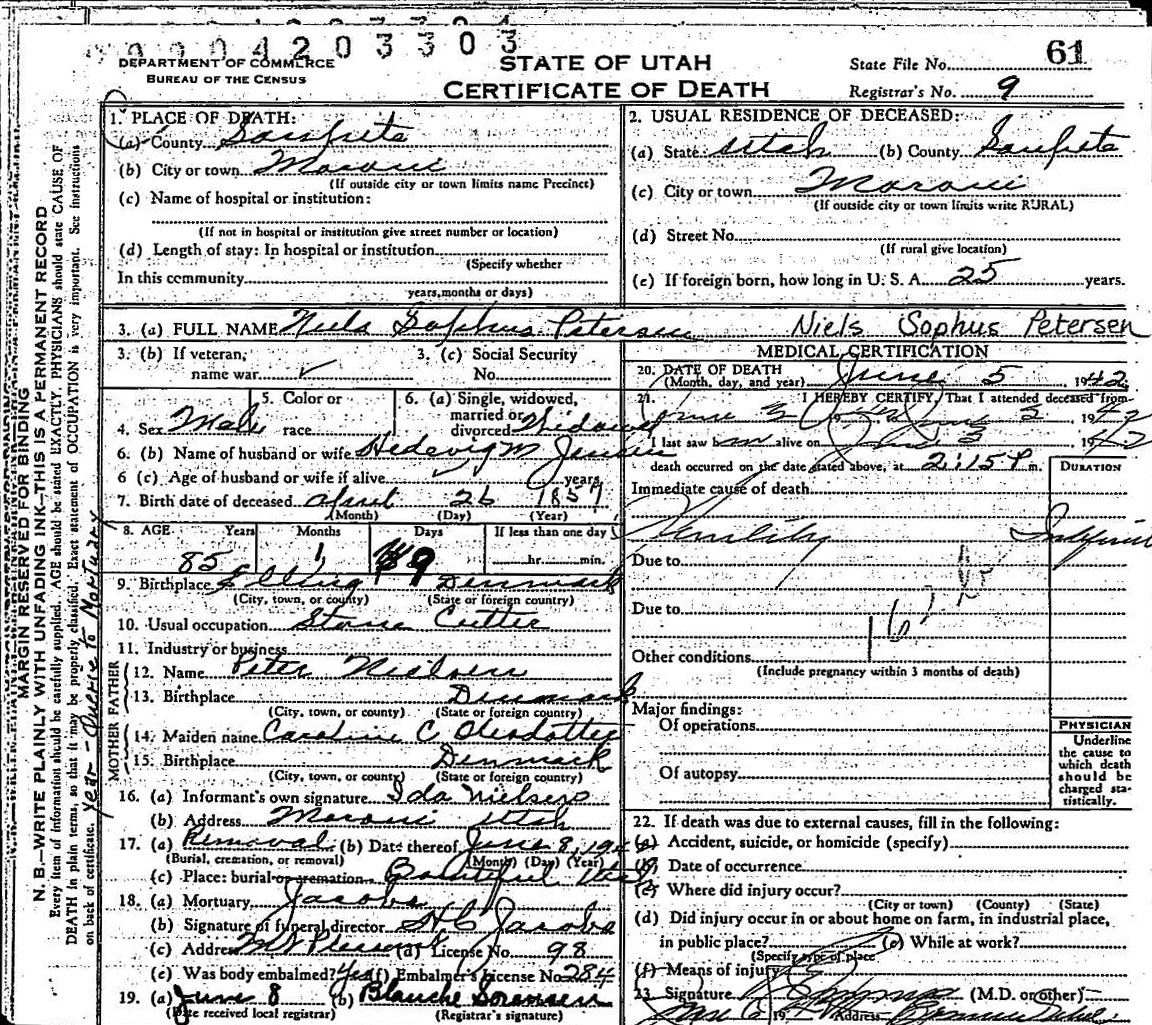 0004203303
DEPARTMENT OF COMMERCE
BUREAU OF THE CENSUS
STATE OF UTAH
CERTIFICATE OF DEATH
State File No. 61
Registrar's No. 9
N. B.—WRITE PLAINLY WITH UNFADING INK—THIS IS A PERMANENT RECORD
MARGIN RESERVED FOR BINDING
Every item of information should be carefully supplied. AGE should be stated EXACTLY. PHYSICIANS should state CAUSE OF
DEATH in plain terms, so that it may be properly classified. Exact statement of OCCUPATION is very important. See instructions
on back of certificate. Year - Querie to Mortuary
1. PLACE OF DEATH:
(a) County Sanpete
(b) City or town Moroni
(If outside city or town limits name Precinct)
(c) Name of hospital or institution:
(If not in hospital or institution give street number or location)
(d) Length of stay: In hospital or institution
(Specify whether
In this community
years, months or days)
2. USUAL RESIDENCE OF DECEASED:
(a) State Utah (b) County Sanpete
(c) City or town Moroni
(If outside city or town limits write RURAL)
(d) Street No.
(If rural give location)
(e) If foreign born, how long in U. S. A. 25 years.
3. (a) FULL NAME Niels Sophus Petersen Niels Sophus Petersen
3. (b) If veteran, name war
3. (c) Social Security No.
4. Sex Male
5. Color or race
6. (a) Single, widowed, married or divorced Widowed
6. (b) Name of husband or wife Hedevig M Jensen
6 (c) Age of husband or wife if alive years
7. Birth date of deceased April 26 1857
(Month) (Day) (Year)
8. AGE Years Months Days If less than one day
85 1 9 hr. min.
9. Birthplace Elling Denmark
(City, town, or county) (State or foreign country)
10. Usual occupation Stone Cutter
11. Industry or business
FATHER
12. Name Peter Nielsen
13. Birthplace Denmark
(City, town, or county) (State or foreign country)
MOTHER
14. Maiden name Caroline C Olesdatter
15. Birthplace Denmark
(City, town, or county) (State or foreign country)
16. (a) Informant's own signature Ida Nielsen
(b) Address Moroni Utah
17. (a) Removal (b) Date thereof June 8, 19
(Burial, cremation, or removal) (Month) (Day) (Year)
(c) Place: burial or cremation Bountiful Utah
18. (a) Mortuary Jacobs
(b) Signature of funeral director H C Jacobs
(c) Address Mt Pleasant (d) License No. 98
(e) Was body embalmed? Yes (f) Embalmer's License No 284
19. (a) June 8 (b) Blanche Sorensen
(Date received local registrar) (Registrar's signature)
MEDICAL CERTIFICATION
20. DATE OF DEATH
(Month, day, and year) June 5, 1942
21. I HEREBY CERTIFY, That I attended deceased from
June 3 June 3 1942
I last saw him alive on June 3, 1942
death occurred on the date stated above, at 2:15 P. m.
DURATION
Immediate cause of death
Senility
Due to
Due to
162
Other conditions
(Include pregnancy within 3 months of death)
Major findings:
Of operations
Of autopsy
PHYSICIAN
Underline
the cause to
which death
should be
charged sta-
tistically.
22. If death was due to external causes, fill in the following:
(a) Accident, suicide, or homicide (specify)
(b) Date of occurrence
(c) Where did injury occur?
(City or town) (County) (State)
(d) Did injury occur in or about home on farm, in industrial place,
in public place? (e) While at work?
(Specify type of place
(f) Means of injury
23. Signature (M.D. or other)
19 Address